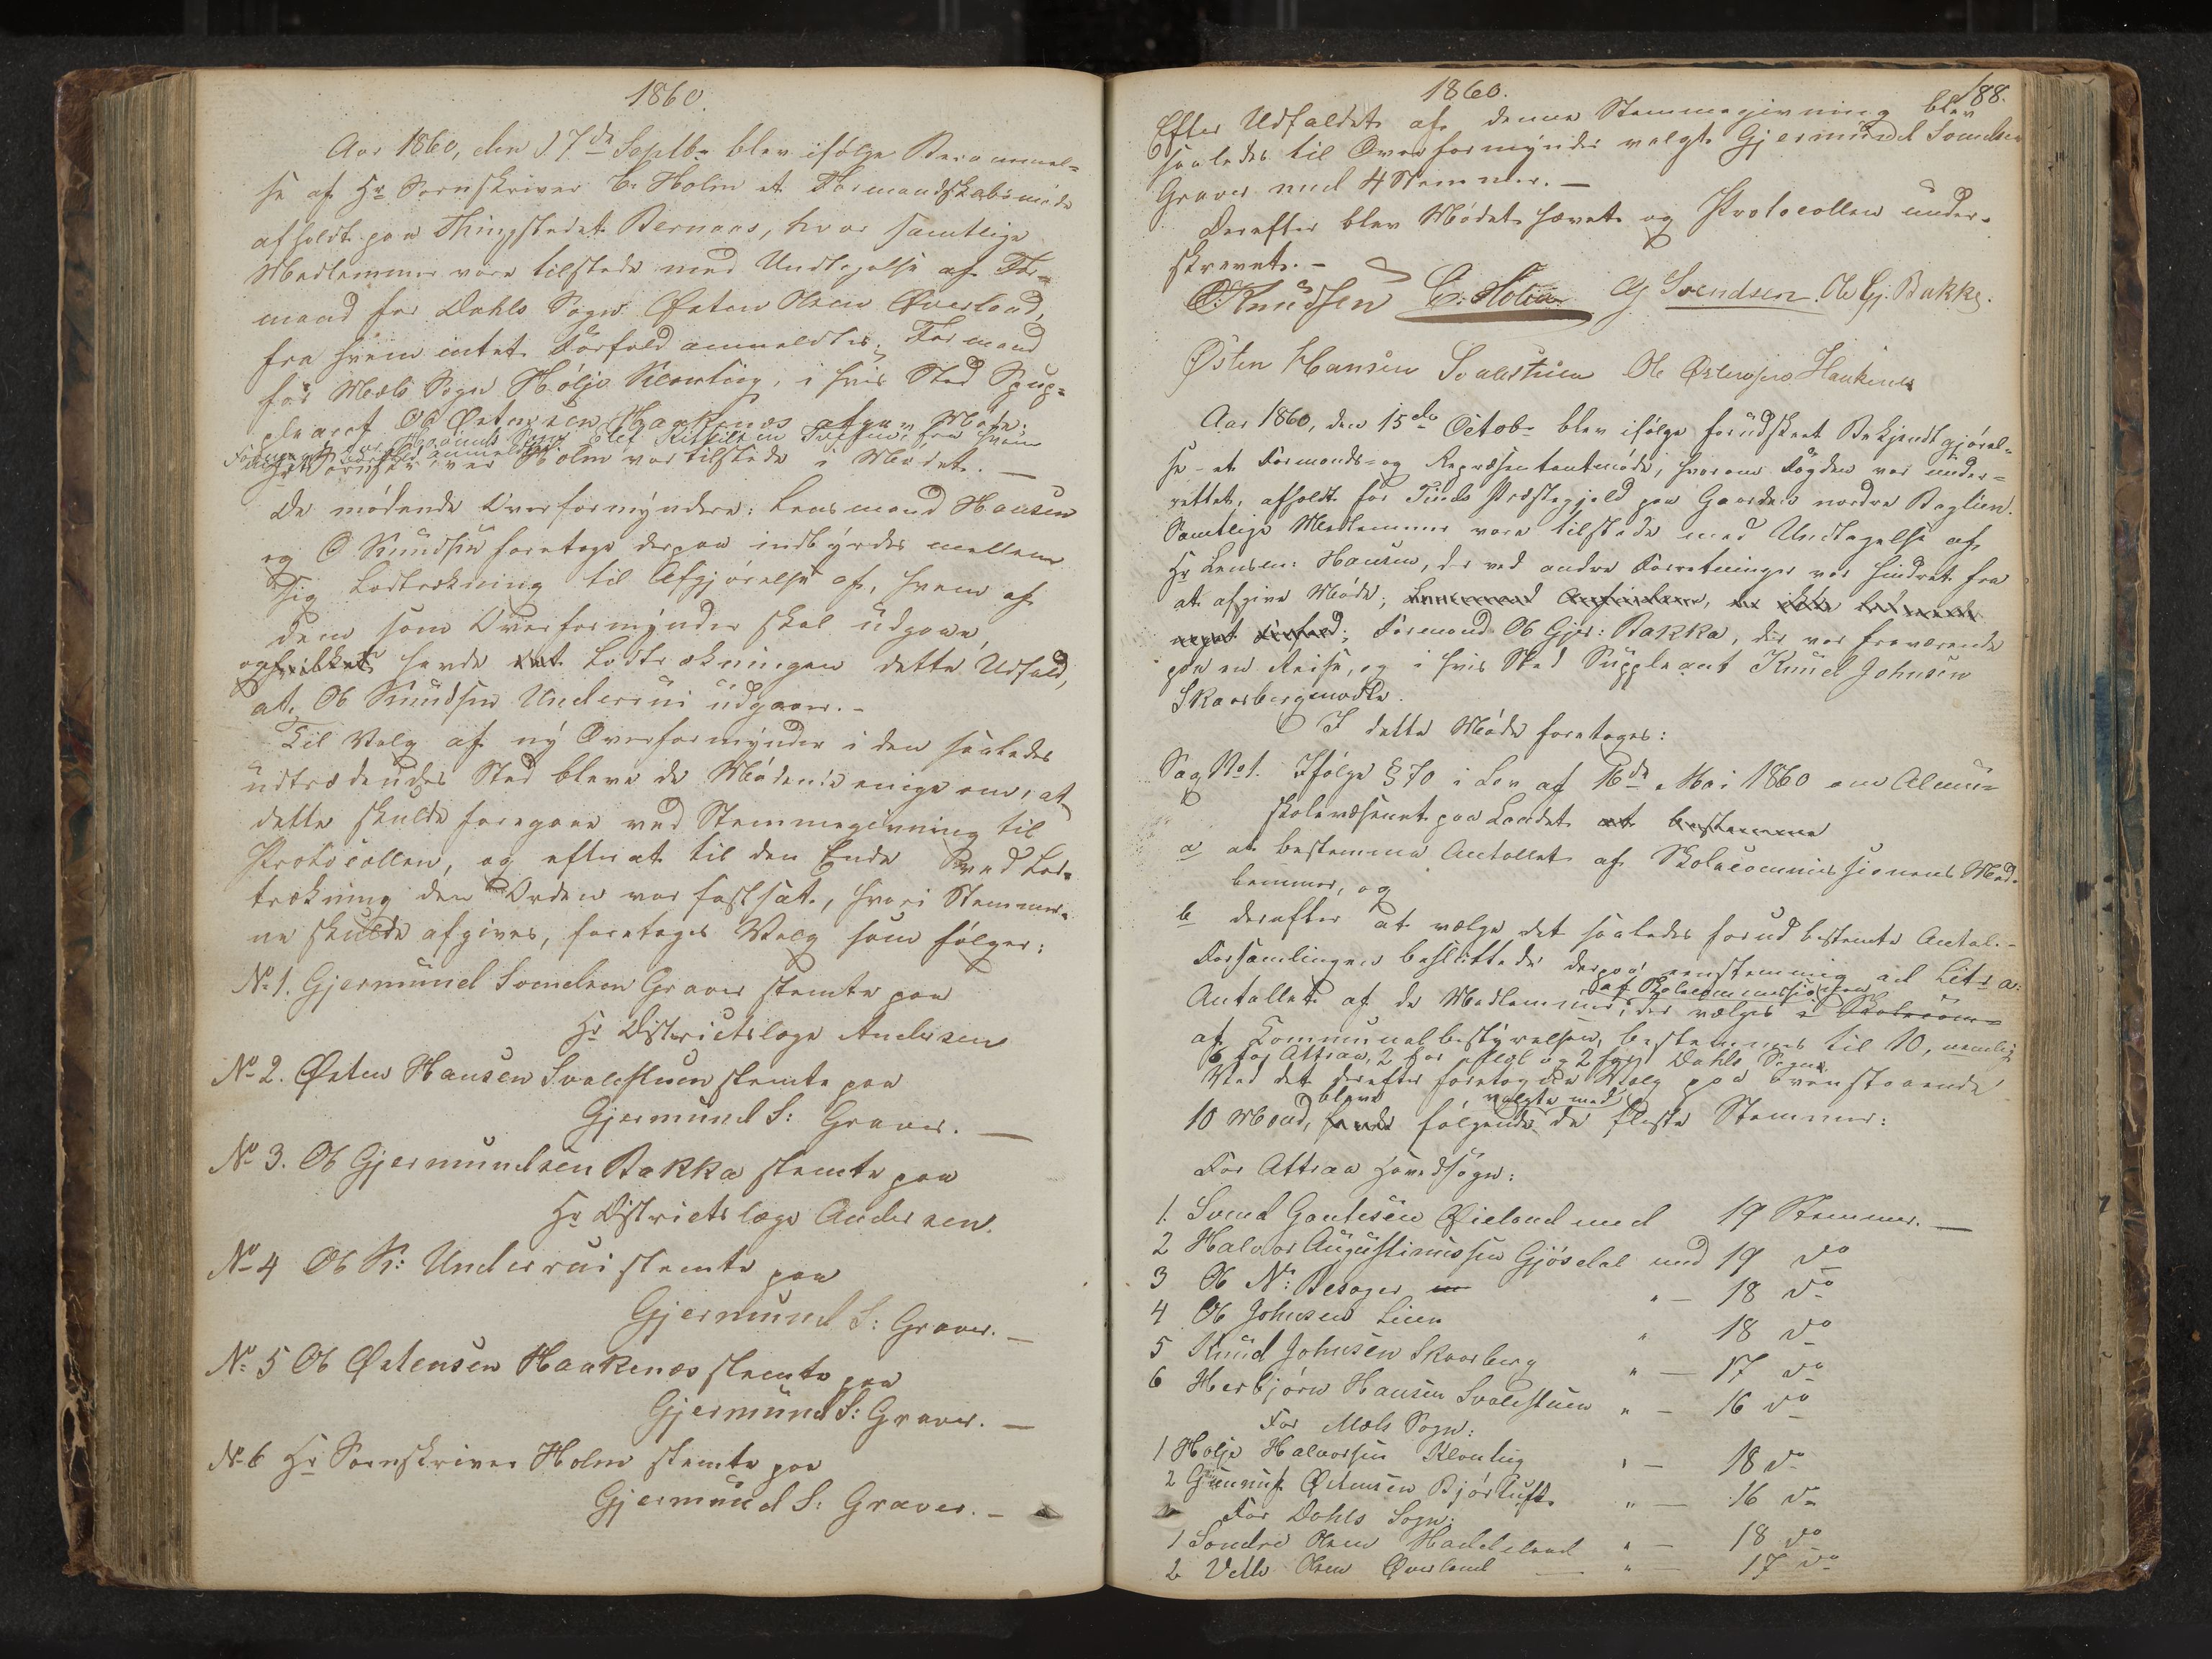 1860.
Aar 1860, den 17de Septbr blev ifølge Berammel-
se af Hr Sorenskriver C. Holm et Formandskabsmøde
afholdt paa Thingstedet Bernaas, hvor samtlige
Medlemmer vare tilstede med Undtagelse af For-
mand for Dahls Sogn Østen Olsen Øverland,
fra hvem intet Forfald anmeldtes; Formand
for Mæls Sogn Høljo Klonteig, i hvis Sted Sup-
pleant Ole Østensen Haakenæs afgav Møde;
Formand for Hovinds Sogn Olef Kittilsen fra hvem
intet Forfald anmeldtes
Hr Sorenskriver Holm var tilstede i Mødet. —
De mødende Overformyndere: Lensmand Hansen
og O Knudsen foretoge derpaa indbyrdes mellem
sig Lodtrækning til Afgjørelse af, hvem af
dem som Overformynder skal udgaae,
og havde Lodtrækningen dette Udfald,
at Ole Knudsen Underrui udgaaer. -
Til Valg af ny Overformynder i den saaledes
udtrædendes Sted bleve de Mødende enige om, at
dette skulde foregaae ved Stemmegivning til
Protocollen, og efterat til den Ende ved Lod-
trækning den Orden var fastsat, hvori Stemmer-
ne skulde afgives, foretoges Valg som følger:
No 1. Gjermund Svendsen Graver stemte paa
Hr Districtslæge Andersen
No 2. Østen Hansen Svalestuen stemte paa
Gjermund S: Graver. —
No 3. Ole Gjermundsen Bakka stemte paa
Hr Districtslæge Andersen.
No 4 Ole K: Underrui stemte paa
Gjermund S: Graver. —
No 5 Ole Østensen Haakenæs stemte paa
Gjermund S: Graver. —
No 6 Hr Sorenskriver Holm stemte paa
Gjermund S: Graver. —
1860.
188.
Efter Udfaldet af denne Stemmegivning blev
saaledes til Overformynder valgt Gjermund Svendsen
Graver med 4 Stemmer. —
Derefter blev Mødet hævet og Protocollen under-
skrevet. -
O. Knudsen C. Holm G Svendsen. Ole Gj. Bakke.
Østen Hansen Svalestuen Ole Østensen Haakenes
Aar 1860, den 15de Octobr blev ifølge forudskeet Bekjendtgjørel-
se - et Formands- og Repræsentantmøde, hvorom Fogden var under-
rettet, afholdt for Tinds Præstegjeld paa Gaarden nordre Bøglien.
Samtlige Medlemmer vare tilstede med Undtagelse af
Hr Lensm: Hansen, der ved andre Forretninger var hindret fra
at afgive Møde;
Formand Ole Gjer: Bakka, der var fraværende
paa en Reise, og i hvis Sted Suppleant Knud Johnsen
Skaarberg mødte.
I dette Møde foretoges:
Sag No 1. Ifølge § 70 i Lov af 16de Mai 1860 om Almue-
skolevæsenet paa Landet at bestemme
a at bestemme Antallet af Skolecommissionens Med-
lemmer, og
b derefter at vælge det saaledes forud bestemte Antal. -
Forsamlingen besluttede derpaa eenstemmig ad Litr a:
Antallet af de Medlemmer af Skolecommissionen, der vælges i Skolecom-
af Communalbestyrelsen, bestemmes til 10, nemlig
6 for Attraa, 2 for Mæl og 2 for Dahls Sogne.
Ved det derefter foretagne Valg paa ovenstaaende
10 Mænd, bleve følgende valgte med de fleste Stemmer:
For Attraa Hovedsogn:
1. Svend Gautesen Øieland med 19 Stemmer. —
2 Halvor Augustinussen Gjøsdal med 19 do
3 Ole N: Besager " — 18 do
4 Ole Johnsen Lien " 18 do
5 Knud Johnsen Skaarberg " — 17 do
6 Herbjørn Hansen Svalestuen " — 16 do
For Mæls Sogn:
1 Høljo Halvorsen Klonteig " — 18 do
2 Gunnuf Østensen Bjørtuft " — 16 do
For Dahls Sogn:
1 Sondre Olsen Haddeland " — 18 do
2 Vetle Olsen Øverland — " — 17 do